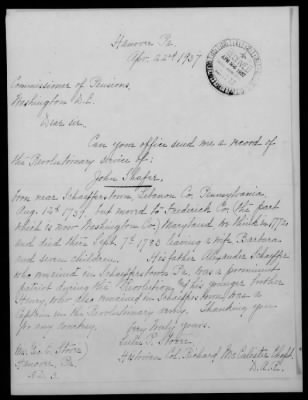 Hanover Pa.
Apr. 22nd 1937
Commissioner of Pensions,
Washington D.C.
Dear sir,
Can your office send me a record of
the Revolutionary service of:
John Shafer,
born near Schaefferstown, Lebanon Co. Pennsylvania
Aug. 12th 1739. but moved to Frederick Co. (the part
which is now Washington Co.) Maryland we think in 1772
and died there Sept. 7th 1793 leaving a wife Barbara
and seven children. His father Alexander Schaeffer
who remained in Schaefferstown Pa. was a prominent
patriot during the Revolution & his younger brother
Henry, who also remained in Schaefferstown was a
Captain in the Revolutionary Army. Thanking you
for any courtesy.
Very truly yours,
P. Stover
Mrs. Geo. C. Stover
Hanover Pa.
Historian Col. Richard McCalester Chapt.
D.A.R.